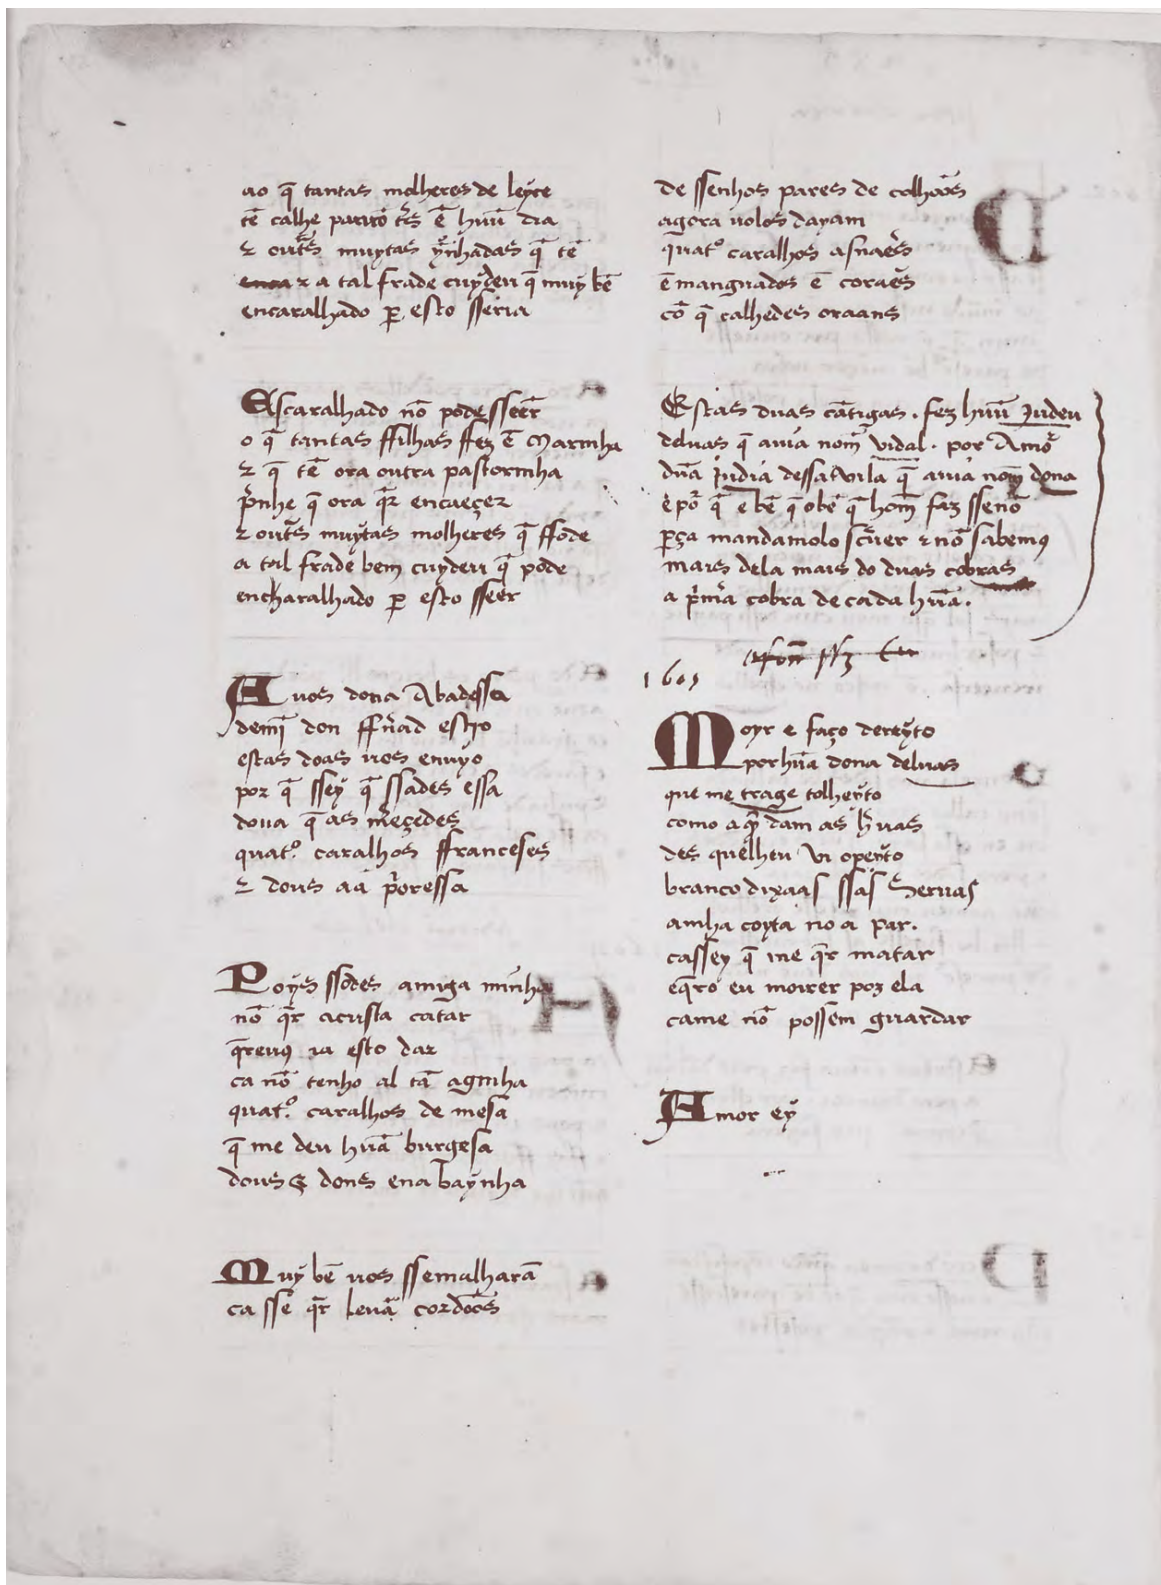 ao q̃ tantas molheres de leyte
tẽ calhe pariro tr̃s ẽ huũ dia
⁊ outr̃s muytas p̃nhadas q̃ tẽ
⁊ a tal frade cuydeu q̃ muy bẽ
encaralhado ꝑ esto sseria
Escaralhado nõ pode sseer̃
o q̃ tantas ffilhas ffez ẽ Marinha
⁊ q̃ tẽ ora outra pastorinha
p̃nhe q̃ ora q̃r encaeçer
⁊ outr̃s muytas molher̃s q̃ ffode
a tal frade bem cuydeu q̃ pode
encharalhado ꝑ esto sseer
A uos dona Abadessa
demĩ don ff̃nãd esqio
estas doas uos enuyo
por q̃ ssey q̃ ssodes essa
dona q̃ as m̃eçedes
quatº. caralhos ffranceses
⁊ dous aa p̃oressa
Poys ssodes amiga minha
nõ q̃r acusta catar
q̃reuꝯ ia esto dar
ca nõ tenho al tã aginha
quatº. caralhos de mesa
q̃ me deu huã burgesa
dous ⁊ dous ena baynha
Muy bẽ uos ssemalharã
ca sse q̃r leuã cordoẽs
de ssenhos pares de colhoẽs
agora uolos dayam
quatº caralhos asnaẽs
ẽ manguados ẽ coraẽs
cõ q̃ calhedes oraans
Estas duas cãtigas . fez huũ Judeu
deluas q̃ auia nom̃ vidal . por Amor̃
dũa Judia dessa vila q̃ auia nom̃ dona
e por̃ q̃ e bẽ q̃ obẽ q̃ hom̃ faz ssenõ
perça mandamolo sc̃uer ⁊ nõ sabemꝯ
mais dela mais do duas cobras
a p̃im̃a cobra de cada huã .
1605
Moyr e faço dereyto
por huã dona deluas
que me trage tolheyto
como aq̃ dam as heruas
des quelheu ui opeyto
branco dixaas ssas Seruas
amha coyta no a par.
ca ssey q̃ me q̃r matar
eq̃ro eu moirer por ela
came nõ possem guardar
Amor ey